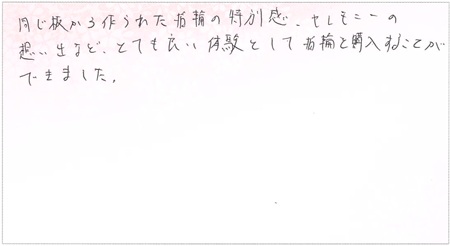 同じ板から作られた指輪の特別感、セレモニーの
思い出など、とても良い体験として指輪を購入することが
できました。